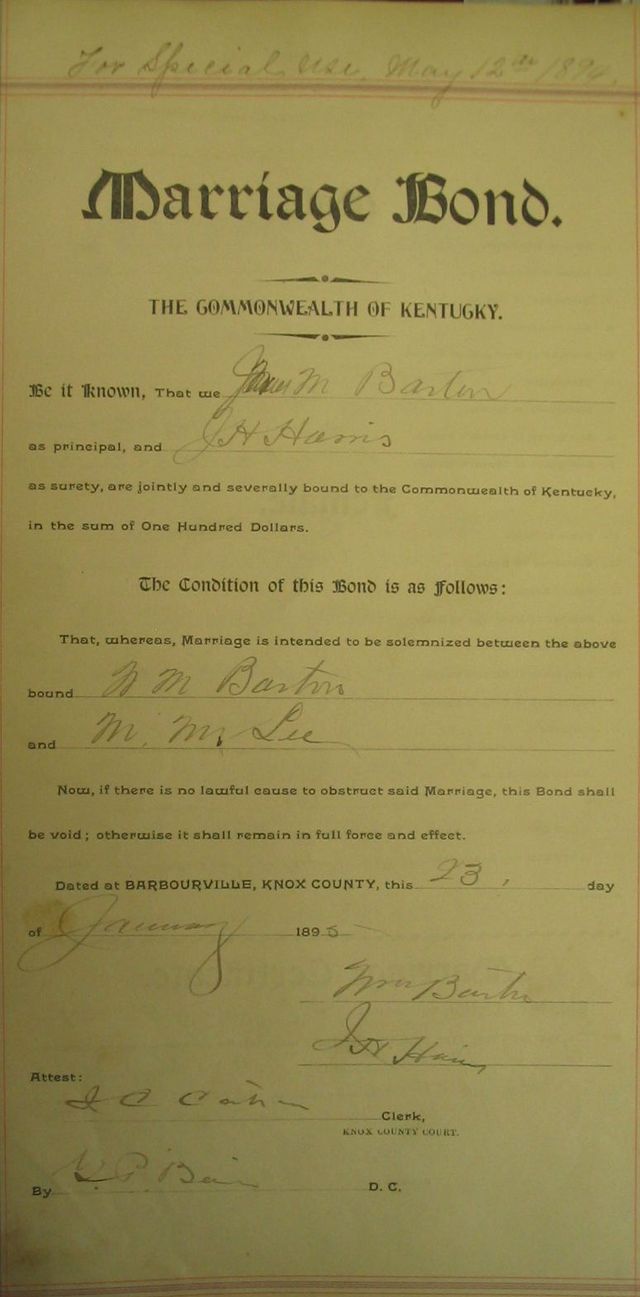 For Special use. May 12th 189
Marriage Bond.
THE COMMONWEALTH OF KENTUCKY.
Be it Known, That we James M Barton
as principal, and J H Harris
as surety, are jointly and severally bound to the Commonwealth of Kentucky,
in the sum of One Hundred Dollars.
The Condition of this Bond is as Follows:
That, whereas, Marriage is intended to be solemnized between the above
bound W M Barton
and M. M. Lee
Now, if there is no lawful cause to obstruct said Marriage, this Bond shall
be void; otherwise it shall remain in full force and effect.
Dated at BARBOURVILLE, KNOX COUNTY, this 23. day
of January 1895
Wm Barton
J H Harris
Attest:
Clerk,
KNOX COUNTY COURT.
By D. C.